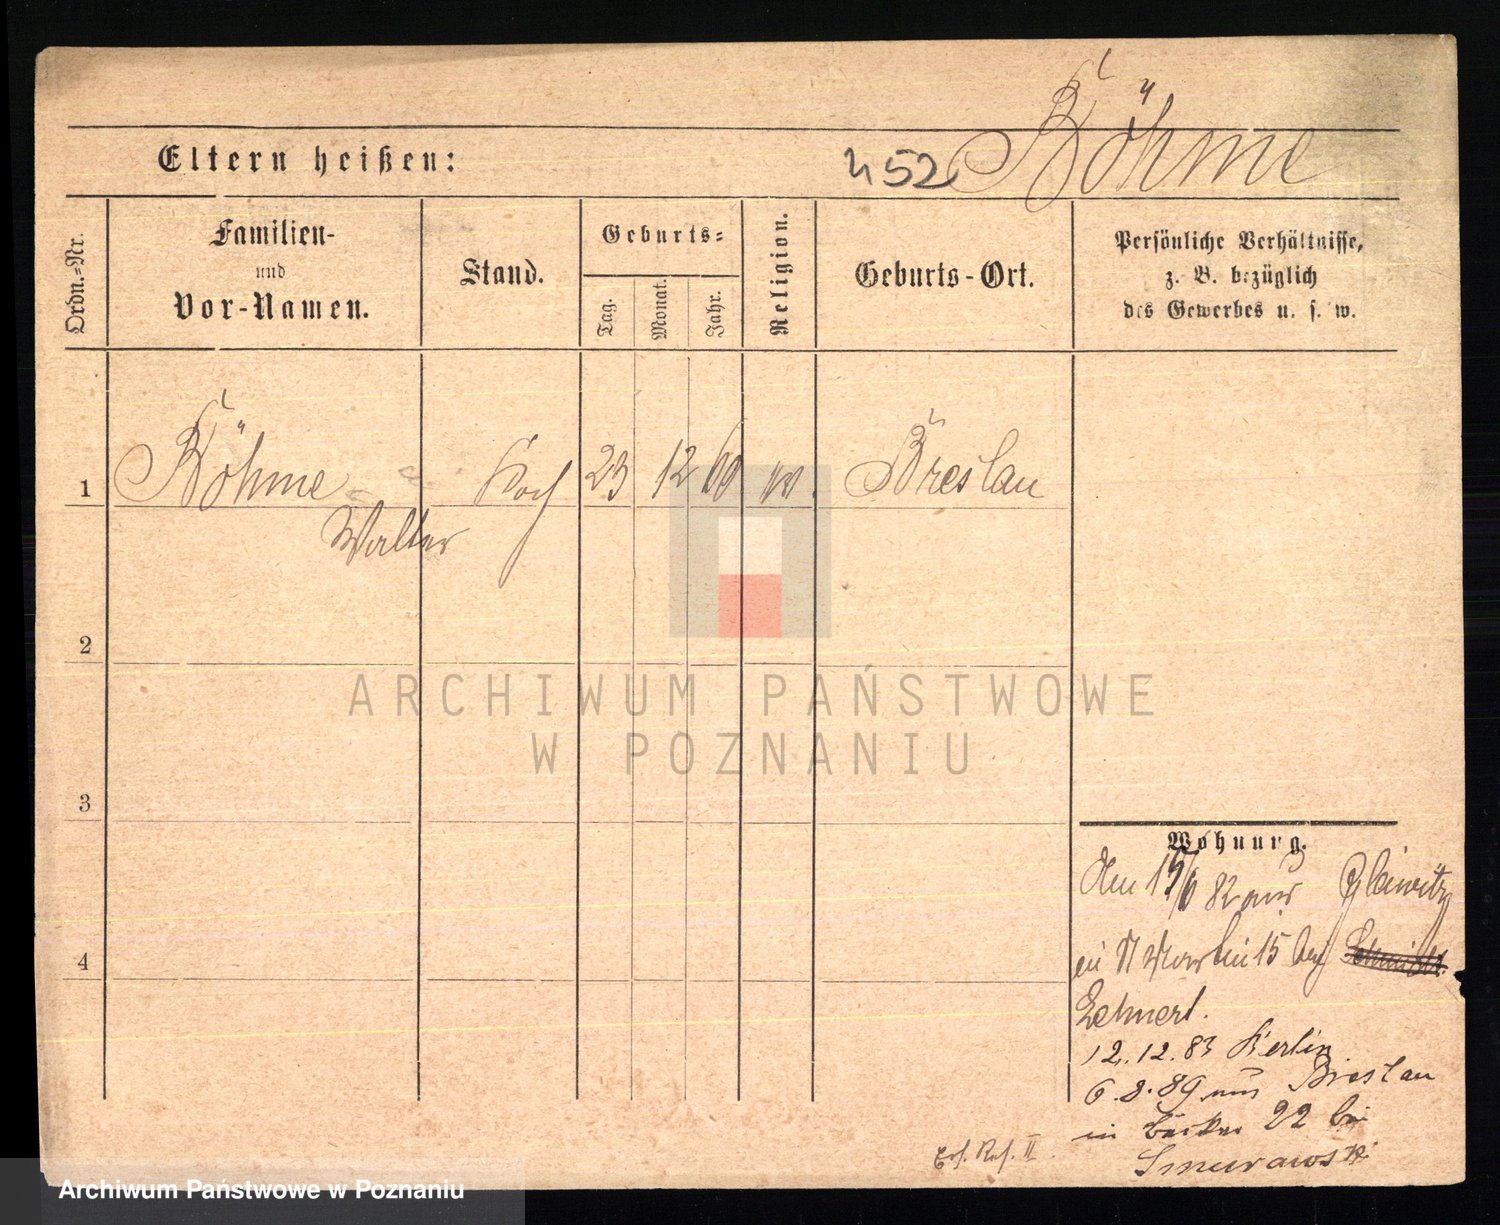 Böhme
Eltern heißen:
452
Ordn.-Nr.
Familien-
und
Vor-Namen.
Stand.
Geburts-
Tag.
Monat.
Jahr.
Religion.
Geburts-Ort.
Persönliche Verhältnisse,
z. B. bezüglich
des Gewerbes u. s. w.
1 Böhme Koch 23 12 60 Breslau
Walter
2
3
4
ARCHIWUM PAŃSTWOWE
W POZNANIU
Wohnung.
82 aus Gleiwitz
in 15 bei
Lehnert.
12.12.83 Berlin
6.8.89 aus Breslau
in Bäcker 22 bei
Smurawski
Ers. Res. II.
Archiwum Państwowe w Poznaniu